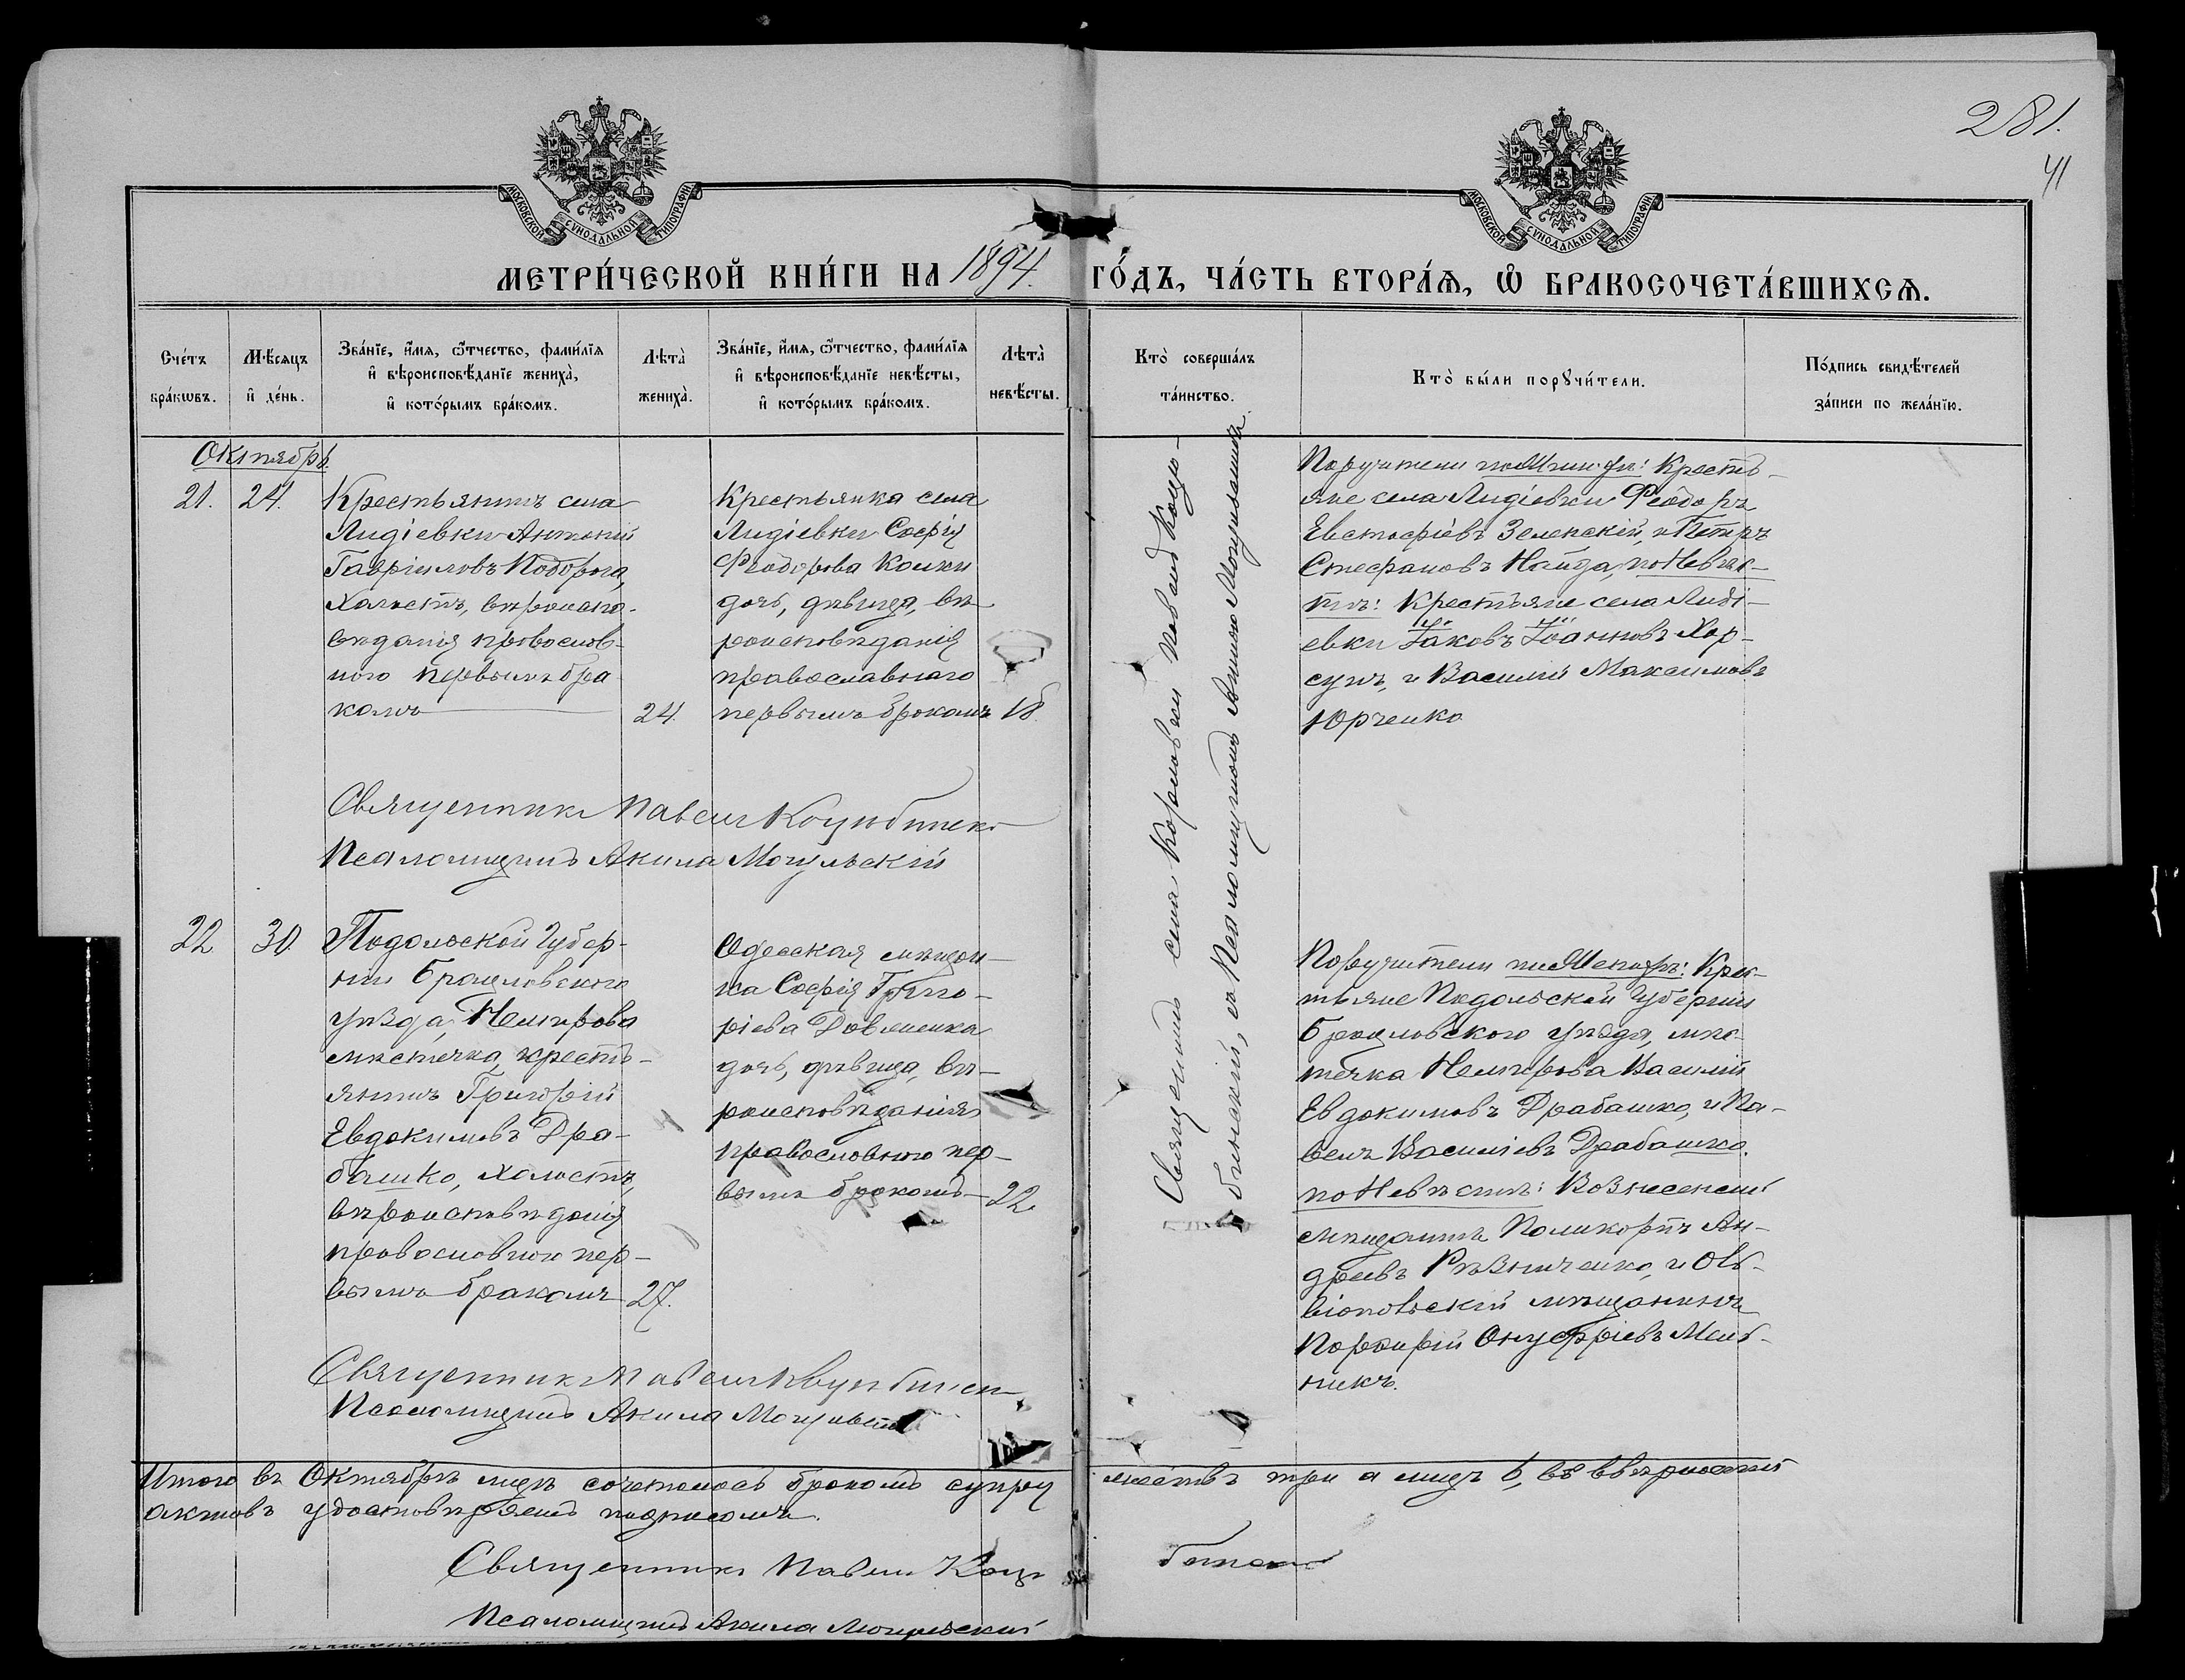 281.
41
МОСКОВСКОЙ СѴНОДАЛЬНОЙ ТИПОГРАФІИ
МОСКОВСКОЙ СѴНОДАЛЬНОЙ ТИПОГРАФІИ
МЕТРИ́ЧЕСКОЙ КНИ́ГИ НА 1894. ГО́ДЪ, ЧА́СТЬ ВТОРА́Ѧ, Ѽ БРАКОСОЧЕТА́ВШИХСѦ.
Сче́тъ
бра́кѡвъ.
Мѣ́сяцъ
и҆ де́нь.
Зва́нїе, и҆́мѧ, ѻ҆́тчество, фами́лїѧ
и҆ вѣроисповѣ́данїе жениха̀,
и҆ кото́рымъ бра́комъ.
Лѣта̀
жениха̀.
Зва́нїе, и҆́мѧ, ѻ҆́тчество, фами́лїѧ
и҆ вѣроисповѣ́данїе невѣ́сты,
и҆ кото́рымъ бра́комъ.
Лѣта̀
невѣ́сты.
Кто̀ соверша́лъ
та́инство.
Кто̀ бы́ли порꙋчи́тели.
По́дпись свидѣ́телей
за́писи по жела́нїю.
Октябрь.
21. 24.
Крестьянинъ села
Лидіевки Антоній
Гавріиловъ Подорога,
Холостъ, вѣроиспо-
вѣданія православ-
ного первымъ бра
комъ
24.
Крестьянка села
Лидіевки Софія
Ѳеодорова
дочь, дѣвица, вѣ-
роисповѣданія
православнаго
первымъ бракомъ
18.
Священникъ села Павелъ Коцю-
бинскій, съ Псаломщикомъ Акилою Могульскимъ
Поручители по Женихѣ: Кресть-
яне села Лидіевки Ѳеодоръ
Евстафіевъ Зеленскій, и Петръ
Стефановъ Найда, по Невѣс-
тѣ: Крестьяне села Лиді-
евки Іаковъ Іоанновъ Хор-
сунъ, и Василій Максимовъ
Юрченко
Священникъ Павелъ Коцюбинскі
Псаломщикъ Акила Могульскій
22 30.
Подольской Губер-
ніи Брацловского
уѣзда, Немирова
мѣстечка, кресть-
янинъ Григорій
Евдокимовъ Дра-
башко, холостъ,
вѣроисповѣданія
православного пер-
вымъ бракомъ
27.
Одесская мѣщан-
ка Софія Григо-
ріева
дочь, дѣвица, вѣ-
роисповѣданія
православного пер-
вымъ бракомъ
22.
Поручители по Женихѣ: Крес-
тьяне Подольской Губерніи
Брацловского уѣзда, мѣс-
течка Немирова Василій
Евдокимовъ Драбашко, и Па-
велъ Василіевъ Драбашко.
по Невѣстѣ: Вознесенскій
мѣщанинъ Поликарпъ Ан-
дреевъ Рѣзниченко, и Оль-
віопольскій мѣщанинъ
Порфирій Онуфріевъ Мель-
никъ.
Священникъ Павелъ Коцюбинск
Псаломщикъ Акила Могульскій
Итого въ Октябрѣ мцѣ сочеталось бракомъ супру жествъ три а лицъ 6, въ вѣрности
актовъ удостовѣряемъ подписомъ.
Священникъ Павелъ Коцю бинскі
Псаломщикъ Акила Могульскій